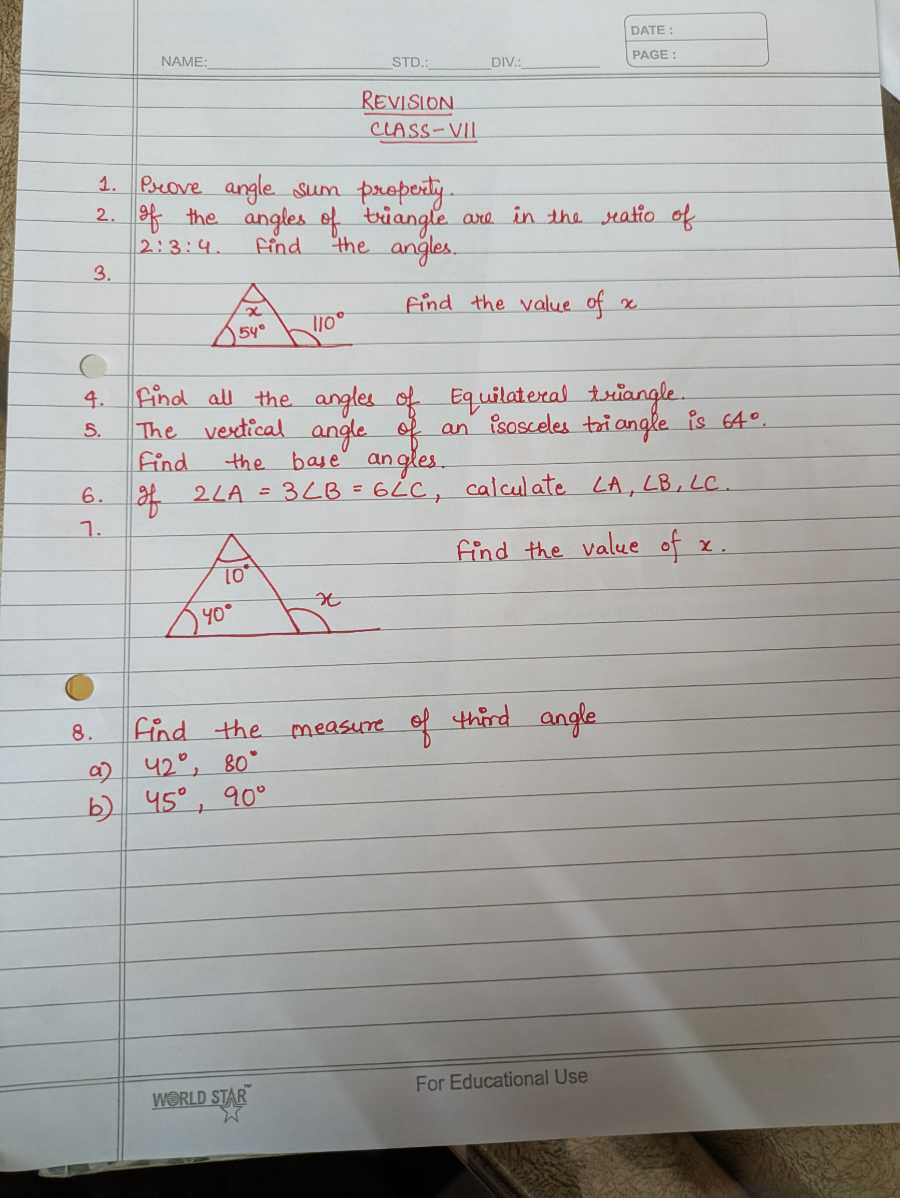 DATE :
NAME: STD.: DIV.: PAGE :
REVISION
CLASS-VII
1. Prove angle sum property.
2. If the angles of triangle are in the ratio of
2:3:4. Find the angles.
3.
x 54° 110° Find the value of x
4. Find all the angles of Equilateral triangle.
5. The vertical angle of an isosceles triangle is 64°.
Find the base angles.
6. If 2∠A = 3∠B = 6∠C, calculate ∠A, ∠B, ∠C.
7.
Find the value of x.
10°
40° x
8. Find the measure of third angle
a) 42°, 80°
b) 45°, 90°
For Educational Use
WORLD STAR™